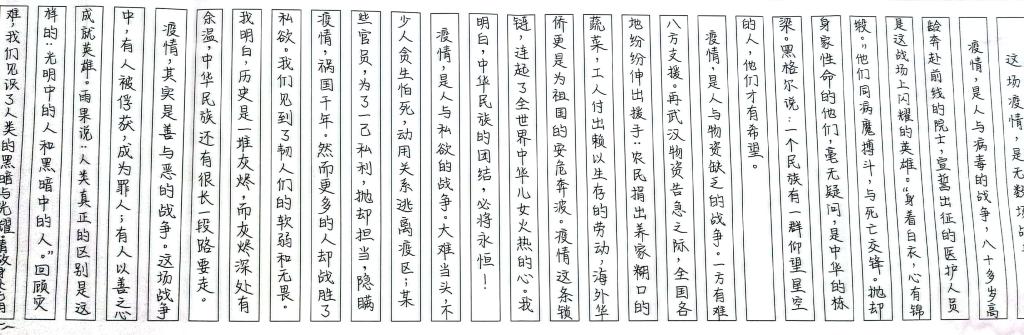 这场疫情，是无数场战
疫情，是人与病毒的战争，八十多岁高
龄奔赴前线的院士，宣誓出征的医护人员
是这战场上闪耀的英雄。“身着白衣，心有锦
毅。”他们同病魔搏斗，与死亡交锋。抛却
身家性命的他们，毫无疑问，是中华的栋
梁。黑格尔说：一个民族有一群仰望星空
的人，他们才有希望。
疫情，是人与物资缺乏的战争。一方有难
八方支援。再武汉物资告急之际，全国各
地纷纷伸出援手：农民捐出养家糊口的
蔬菜，工人付出赖以生存的劳动，海外华
侨更是为祖国的安危奔波。疫情这条锁
链，连起了全世界中华儿女火热的心。我
明白，中华民族的团结，必将永恒！
疫情，是人与私欲的战争。大难当头，不
少人贪生怕死，动用关系逃离疫区；某
些官员，为了一己私利，抛却担当，隐瞒
疫情，祸国千年。然而更多的人却战胜了
私欲。我们见到了韧人们的软弱和无畏。
我明白，历史是一堆灰烬，而灰烬深处有
余温，中华民族还有很长一段路要走。
疫情，其实是善与恶的战争。这场战争
中，有人被俘获，成为罪人；有人以善之心
成就英雄。雨果说：“人类真正的区别是这
样的：光明中的人和黑暗中的人。”回顾灾
难，我们见识了人类的黑暗与光耀。